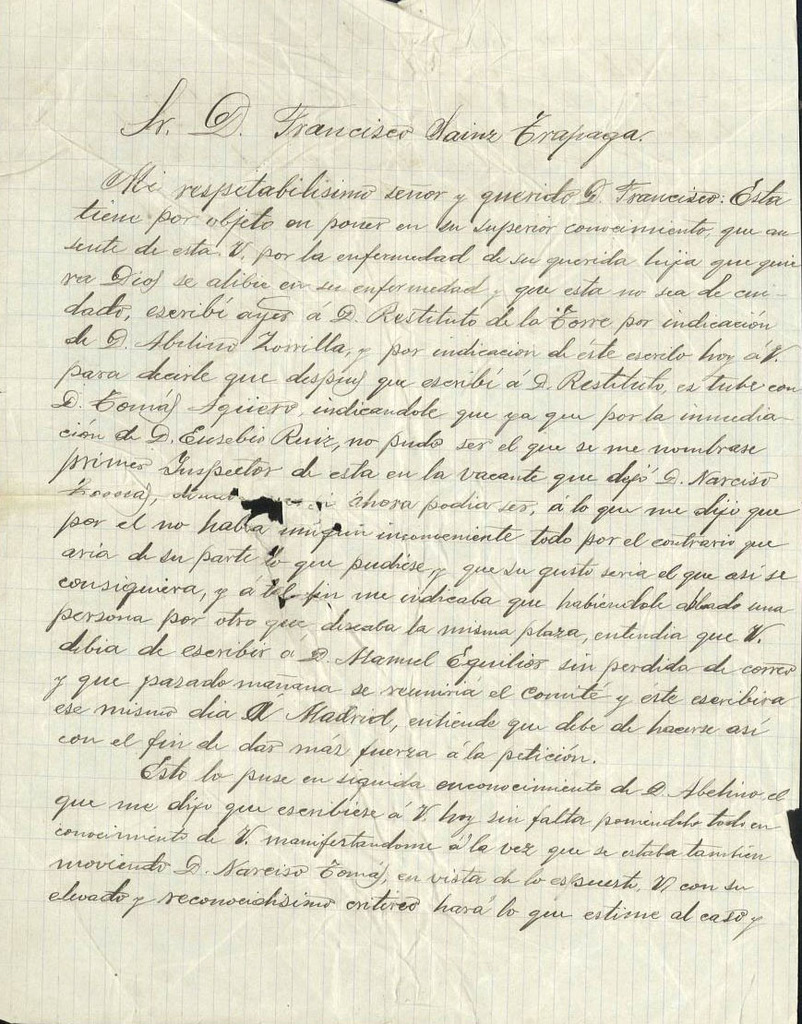 Sr. D. Francisco Sainz Trapaga.
Mi respetabilisimo señor y querido D. Francisco: Esta
tiene por objeto en poner en su superior conocimiento, que au
sente de esta V. por la enfermedad de su querida hija que quie
ra Dios se alibie en su enfermedad y que esta no sea de cui-
dado, escribí ayer a D. Restituto de la Torre por indicación
de D. Abelino Zorrilla, y por indicacion de éste escribo hoy á V.
para decirle que despues que escribí á D. Restituto, es tube con
D. Tomás Agüero, indicandole que ya que por la inmedia-
ción de D. Eusebio Ruiz, no pudo ser el que se me nombrase
primer Inspector de esta en la vacante que dejó D. Narciso
ahora podia ser, á lo que me dijo que
por el no habia ningún inconveniente todo por el contrario que
aria de su parte lo que pudiese, y que su gusto seria el que así se
consiguiera, y á tal fin me indicaba que habiendole ablado una
persona por otro que deseaba la misma plaza, entendia que V.
debia de escribir á D. Manuel Eguilior sin perdida de correo
y que pasado mañana se reuniria el Comité y este escribira
ese mismo dia a Madrid, entiende que debe de hacerse así
con el fin de dar más fuerza á la petición.
Esto lo puse en siguida enconocimiento de D. Abelino, el
que me dijo que escribiese á V. hoy sin falta poniendolo todo en
conocimiento de V. manifestandome á la vez que se estaba tambien
moviendo D. Narciso Tomás, en vista de lo espuesto V. con su
elevado y reconocidisimo criterio hará lo que estime al caso y